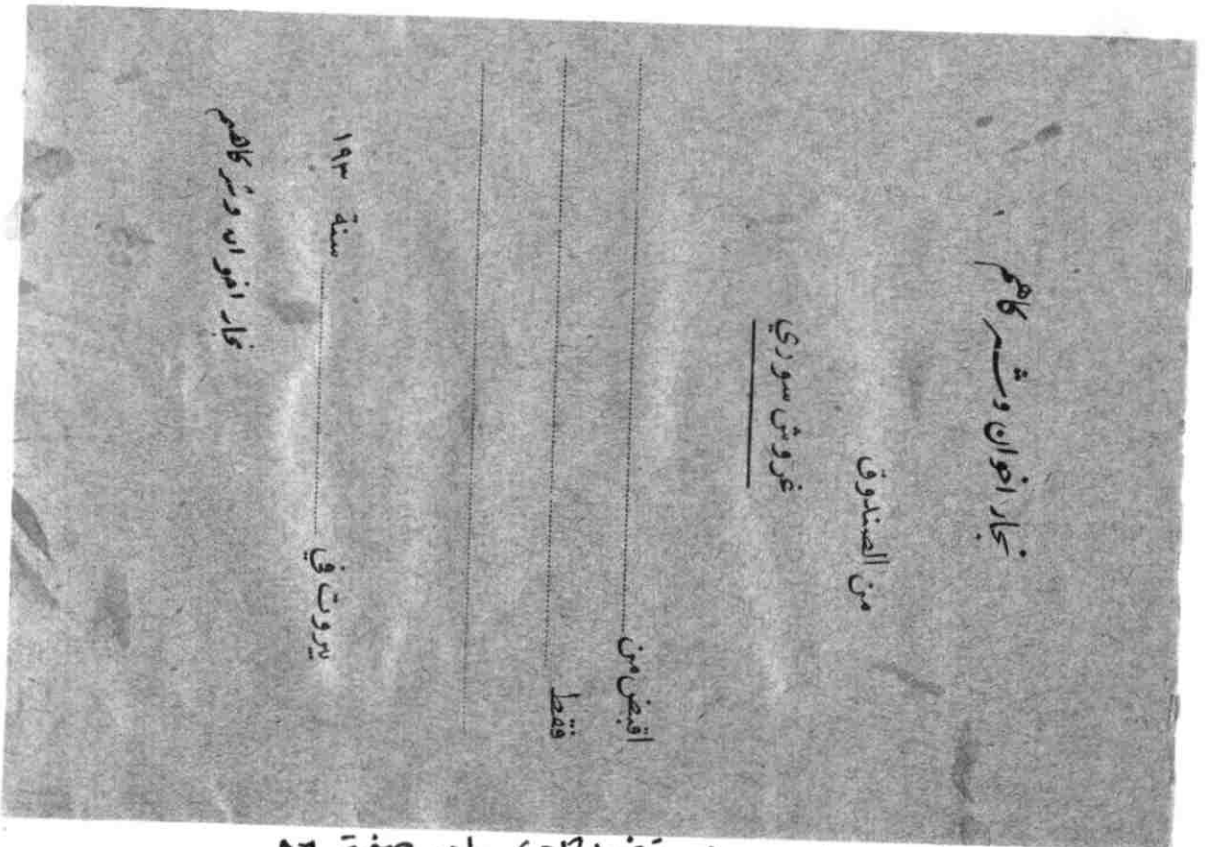 نجار اخوان وشركاهم
من الصندوق
غروش سوري
اقبض من
فقط
بيروت في سنة ١٩٣
نجار اخوان وشركاهم
صفحة ٨٦